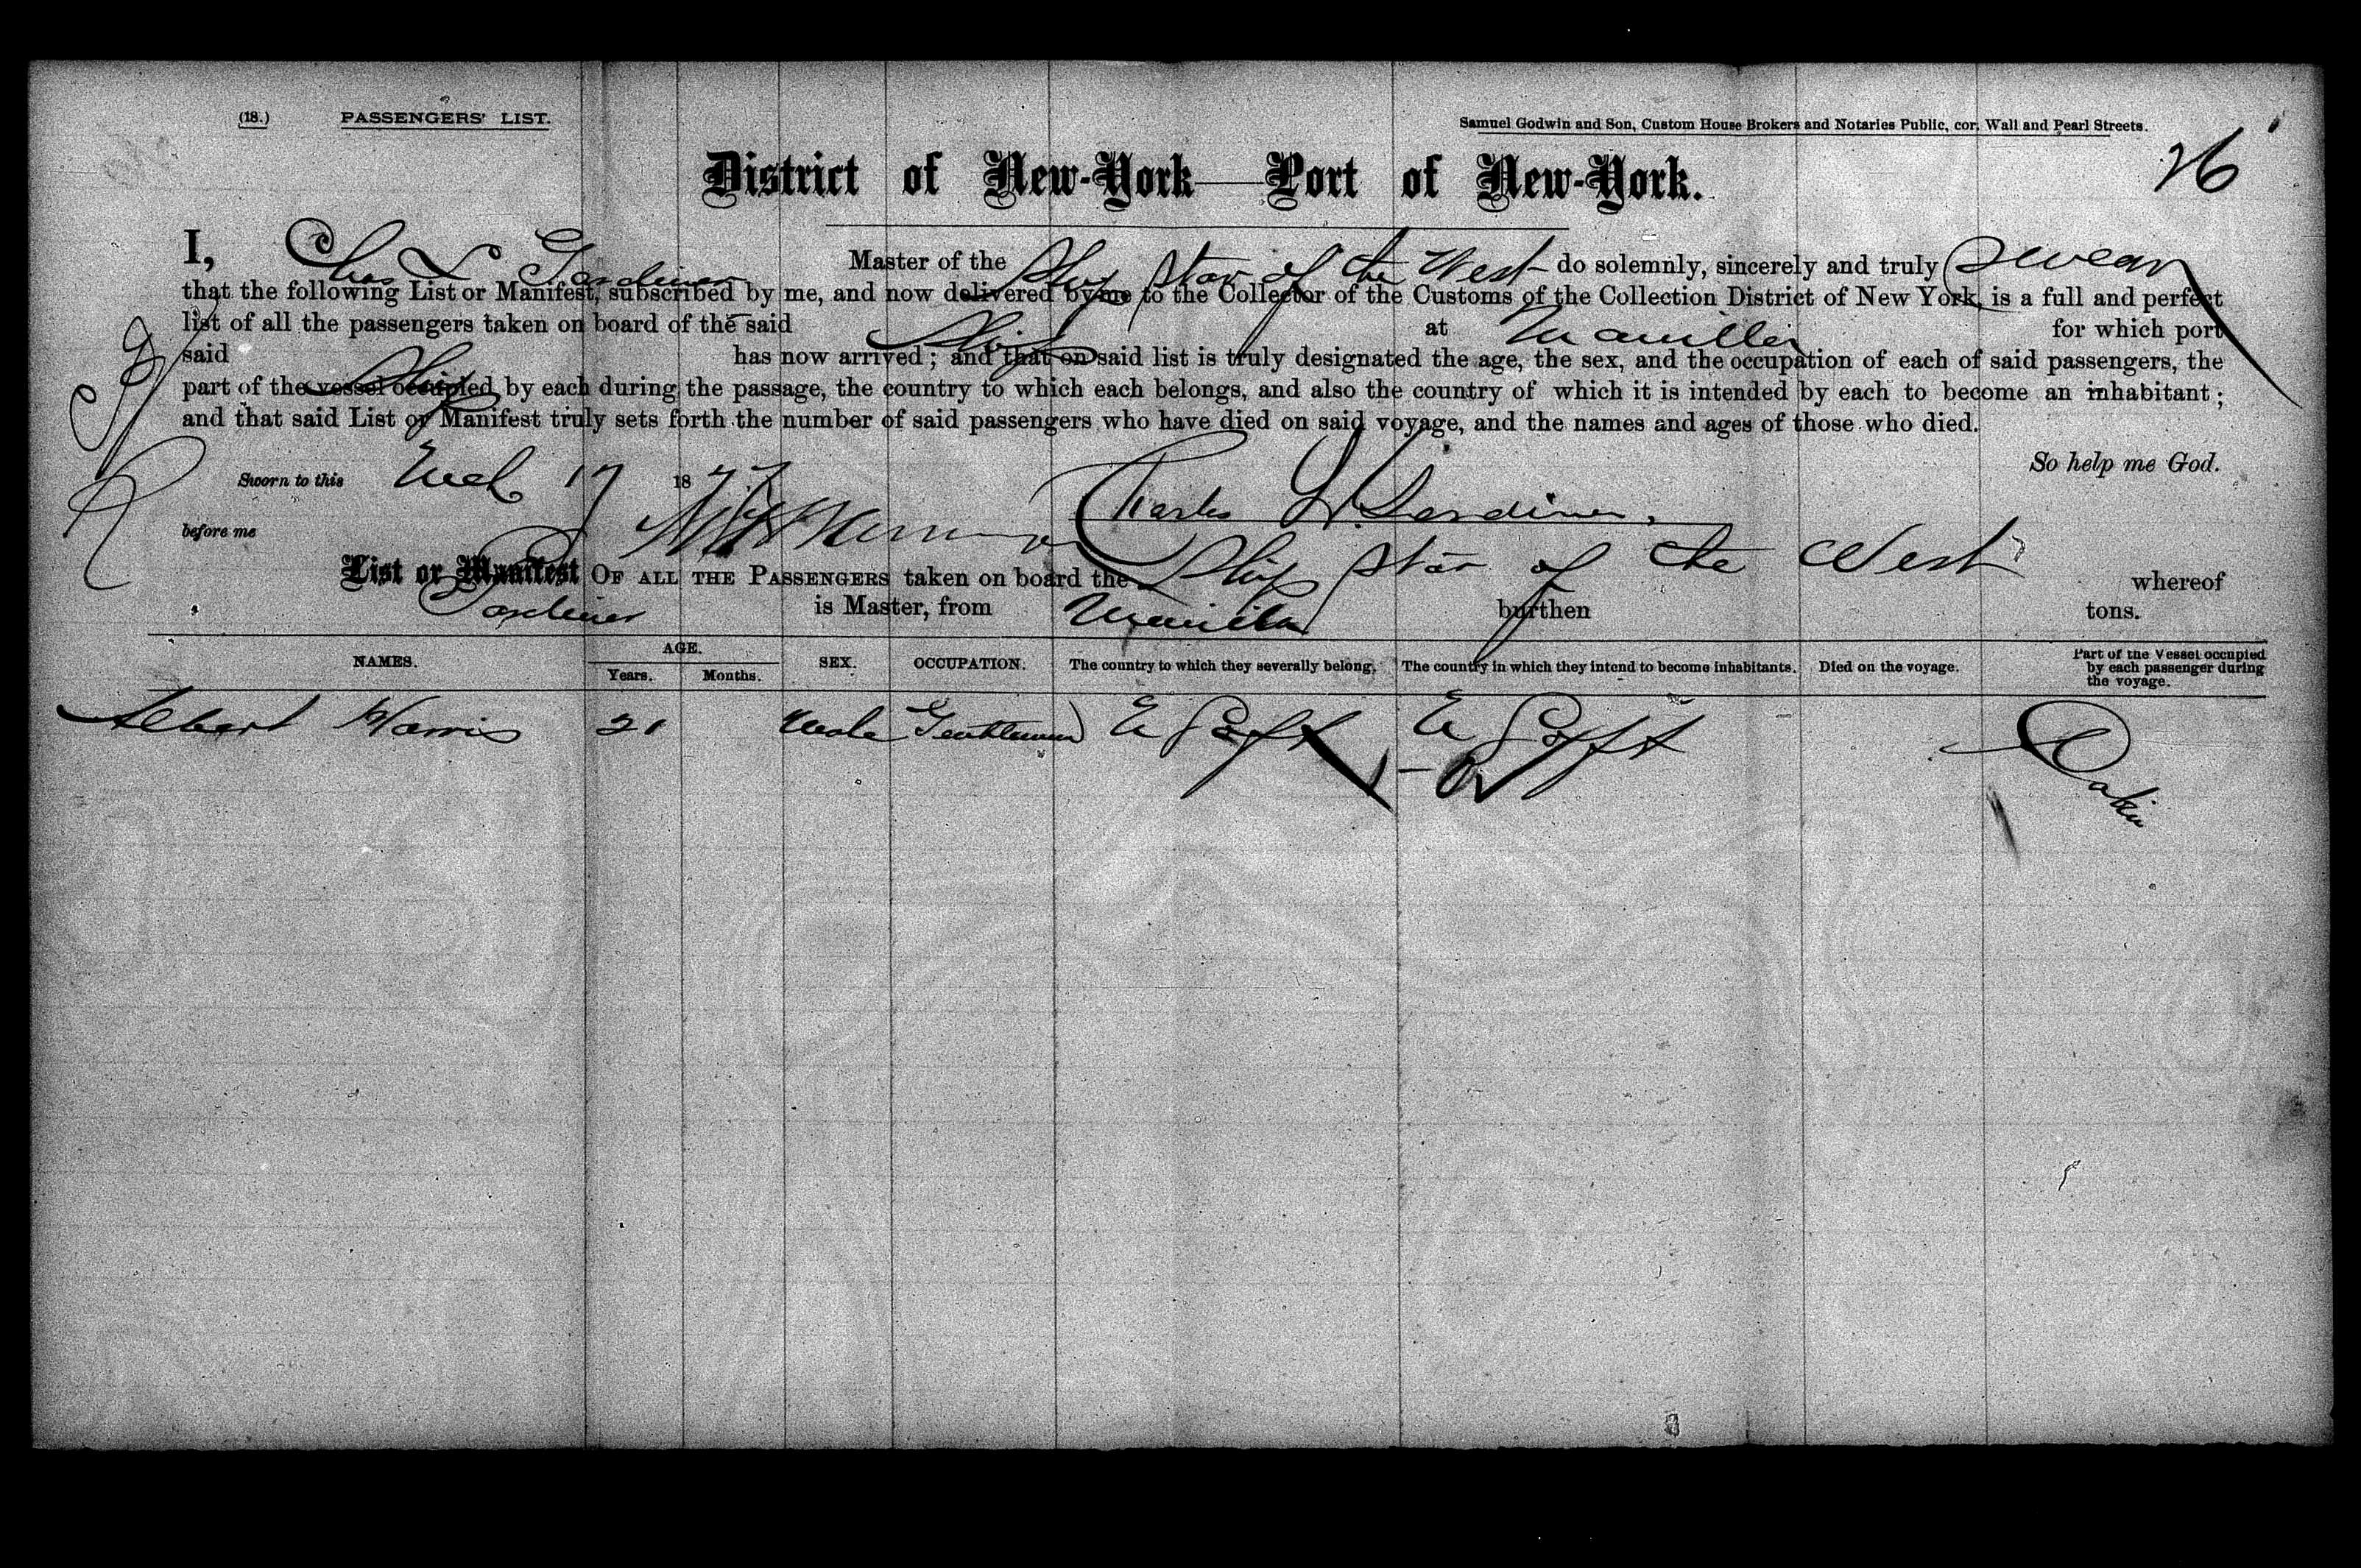 (18.) PASSENGERS' LIST.
Samuel Godwin and Son, Custom House Brokers and Notaries Public, cor. Wall and Pearl Streets.
26
District of New-York—Port of New-York.
I, Chas L Gardiner Master of the Ship Star of the West do solemnly, sincerely and truly swear
that the following List or Manifest, subscribed by me, and now delivered by me to the Collector of the Customs of the Collection District of New York, is a full and perfect
list of all the passengers taken on board of the said Ship at Manilla for which port
said Ship has now arrived; and that on said list is truly designated the age, the sex, and the occupation of each of said passengers, the
part of the vessel occupied by each during the passage, the country to which each belongs, and also the country of which it is intended by each to become an inhabitant;
and that said List or Manifest truly sets forth the number of said passengers who have died on said voyage, and the names and ages of those who died.
So help me God.
Sworn to this Mch 17 1877
Charles L. Gardiner.
before me
List or Manifest OF ALL THE PASSENGERS taken on board the Ship Star of the West whereof
Gardiner is Master, from Manilla burthen tons.
NAMES. AGE. Years. Months. SEX. OCCUPATION. The country to which they severally belong. The country in which they intend to become inhabitants. Died on the voyage. Part of the Vessel occupied by each passenger during the voyage.
Albert Harris 21 Male Gentleman